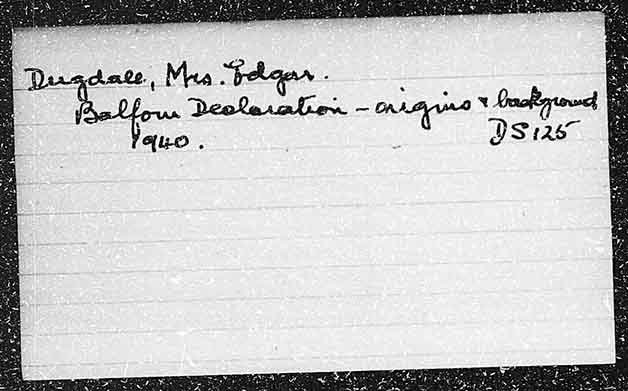 Dugdale, Mrs. Edgar.
Balfour Declaration - origins & background
1940. DS125